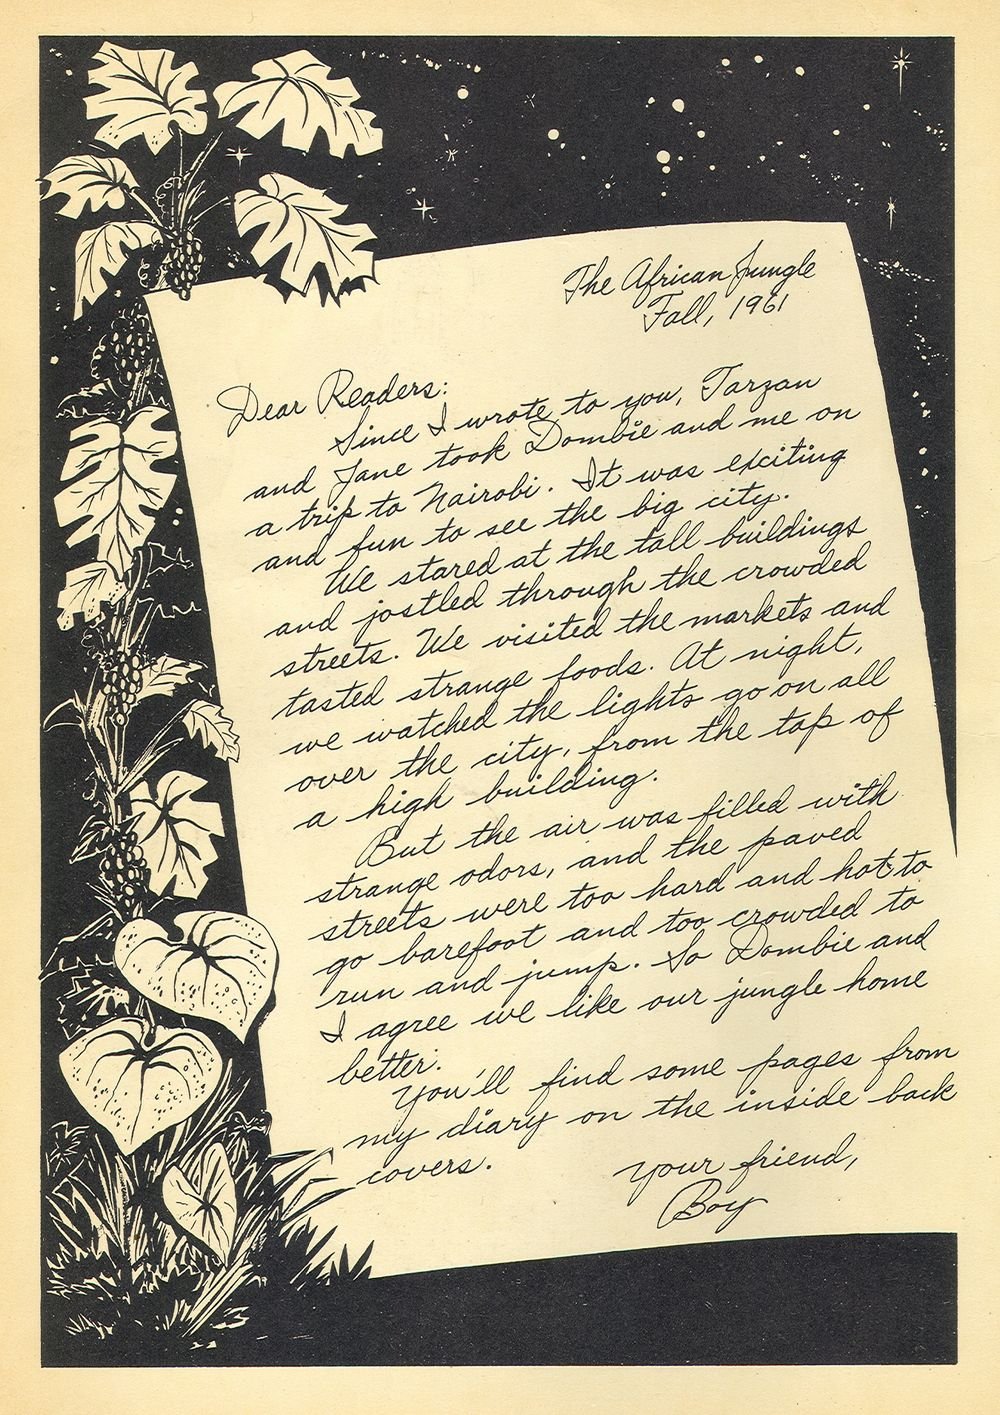 The African Jungle
Fall, 1961
Dear Readers:
Since I wrote to you, Tarzan
and Jane took Dombie and me on
a trip to Nairobi. It was exciting
and fun to see the big city.
We stared at the tall buildings
and jostled through the crowded
streets. We visited the markets and
tasted strange foods. At night,
we watched the lights go on all
over the city, from the top of
a high building.
But the air was filled with
strange odors, and the paved
streets were too hard and hot to
go barefoot and too crowded to
run and jump. So Dombie and
I agree we like our jungle home
better.
You'll find some pages from
my diary on the inside back
covers.
Your friend,
Boy